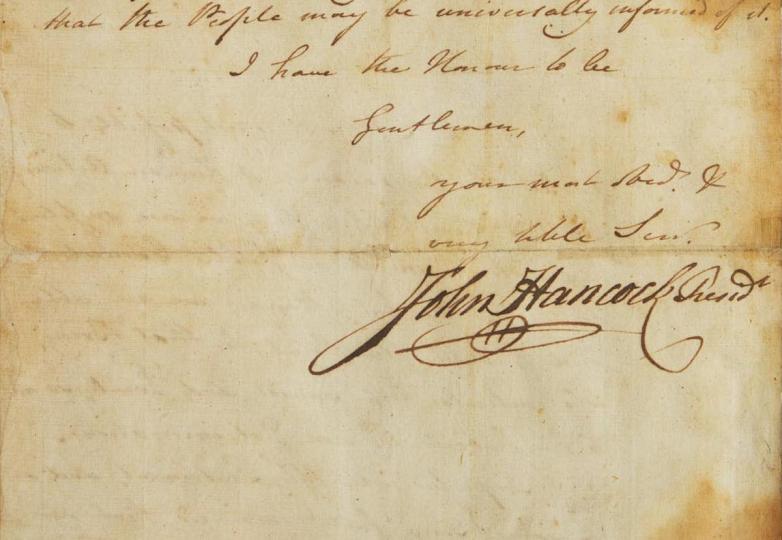 that the People may be universally informed of it.
I have the Honour to be
Gentlemen,
your most obed. &
very hble Ser.
John Hancock Presidt